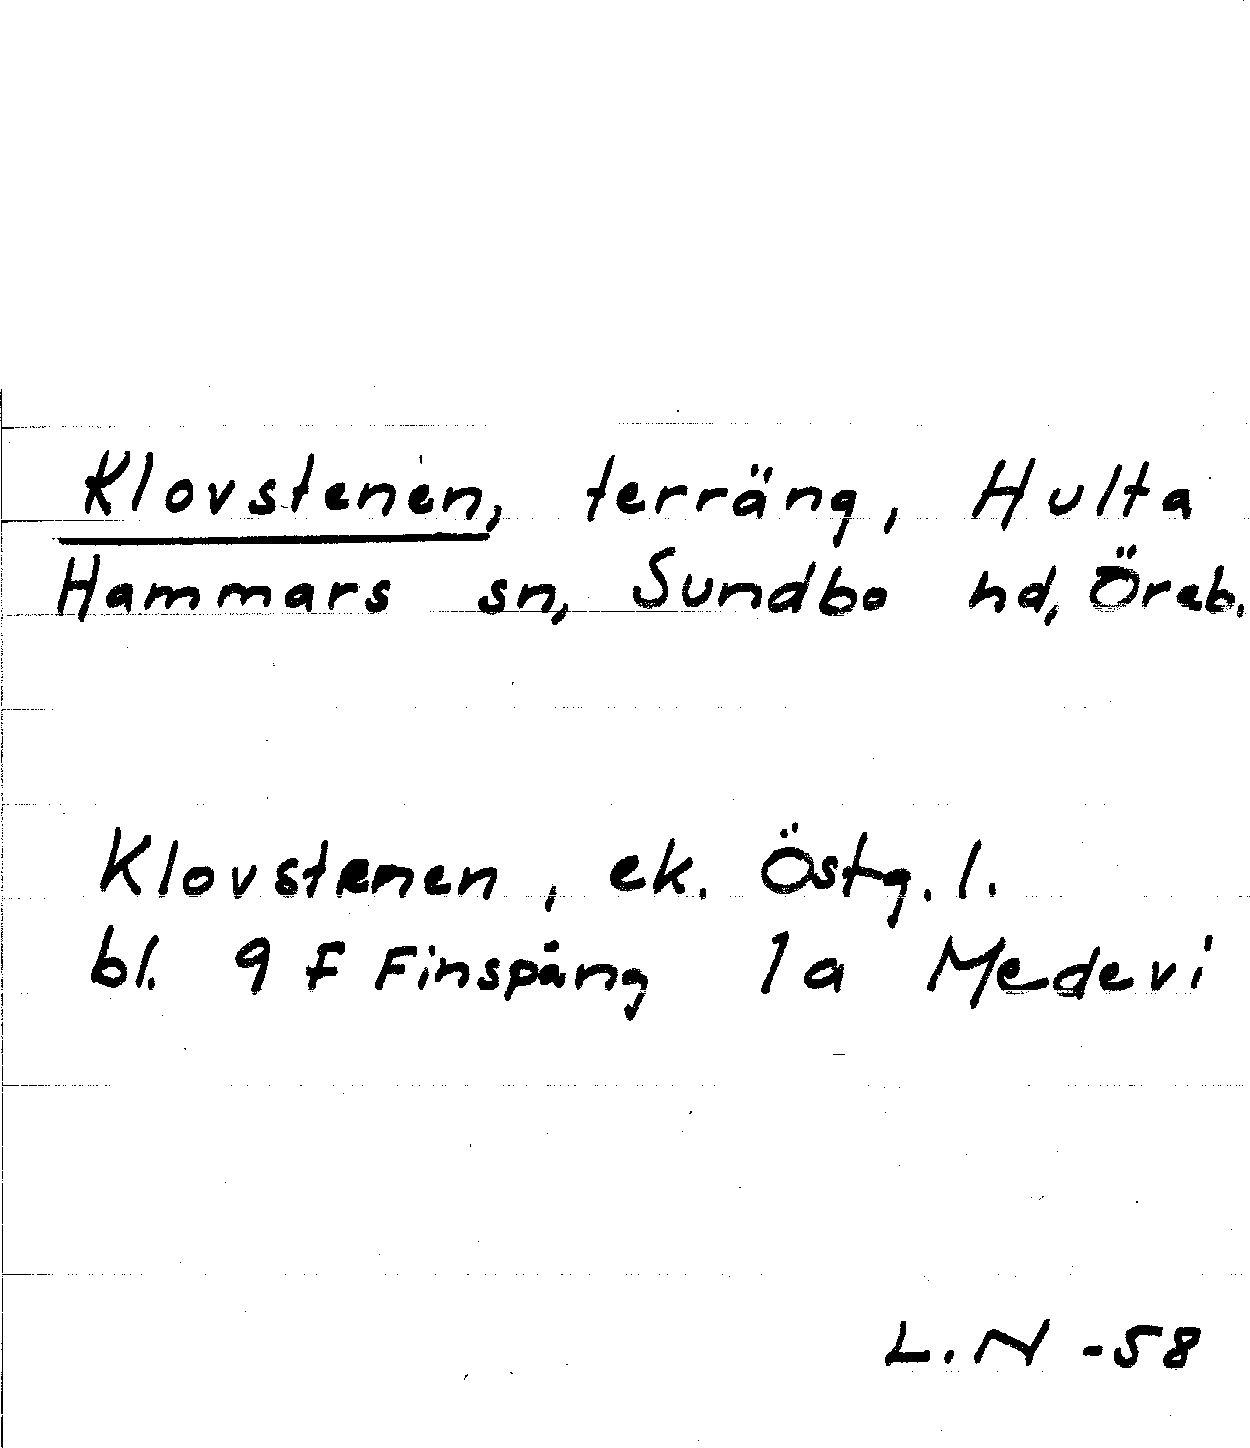 Klovstenen, terräng, Hulta
Hammars sn, Sundbo hd, Öreb.
Klovstenen, ek. Östg. l.
bl. 9 f Finspång 1a Medevi
L.N -58